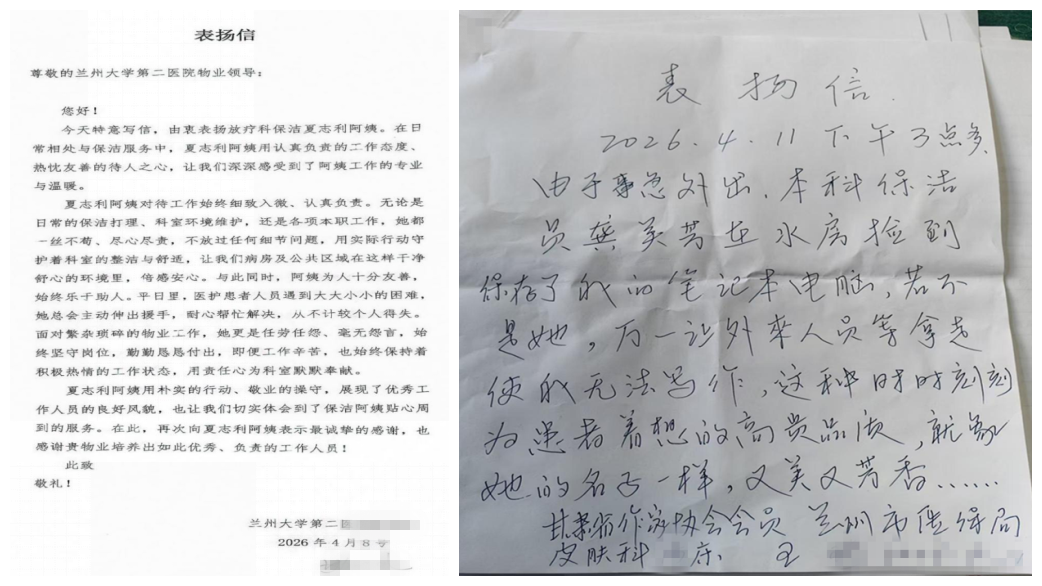 表扬信
尊敬的兰州大学第二医院物业领导：
您好！
今天特意写信，由衷表扬放疗科保洁夏志利阿姨。在日
常相处与保洁服务中，夏志利阿姨用认真负责的工作态度、
热忱友善的待人之心，让我们深深感受到了阿姨工作的专业
与温暖。
夏志利阿姨对待工作始终细致入微、认真负责。无论是
日常的保洁打理、科室环境维护，还是各项本职工作，她都
一丝不苟、尽心尽责，不放过任何细节问题，用实际行动守
护着科室的整洁与舒适，让我们病房及公共区域在这样干净
舒心的环境里，倍感安心。与此同时，阿姨为人十分友善，
始终乐于助人。平日里，医护患者人员遇到大大小小的困难，
她总会主动伸出援手，耐心帮忙解决，从不计较个人得失。
面对繁杂琐碎的物业工作，她更是任劳任怨、毫无怨言，始
终坚守岗位，勤勤恳恳付出，即便工作辛苦，也始终保持着
积极热情的工作状态，用责任心为科室默默奉献。
夏志利阿姨用朴实的行动、敬业的操守，展现了优秀工
作人员的良好风貌，也让我们切实体会到了保洁阿姨贴心周
到的服务。在此，再次向夏志利阿姨表示最诚挚的感谢，也
感谢贵物业培养出如此优秀、负责的工作人员！
此致
敬礼！
兰州大学第二
2026年4月8号
表扬信
2026.4.11下午3点多
由于事急外出，本科保洁
员龚美芳在水房捡到
保存了我的笔记本电脑，若不
是她，万一让外来人员等拿走
使我无法写作，这种时时刻刻
为患者着想的高贵品质，就象
她的名子一样，又美又芳香……
甘肃省作家协会会员 兰州市医保局
皮肤科 床 王